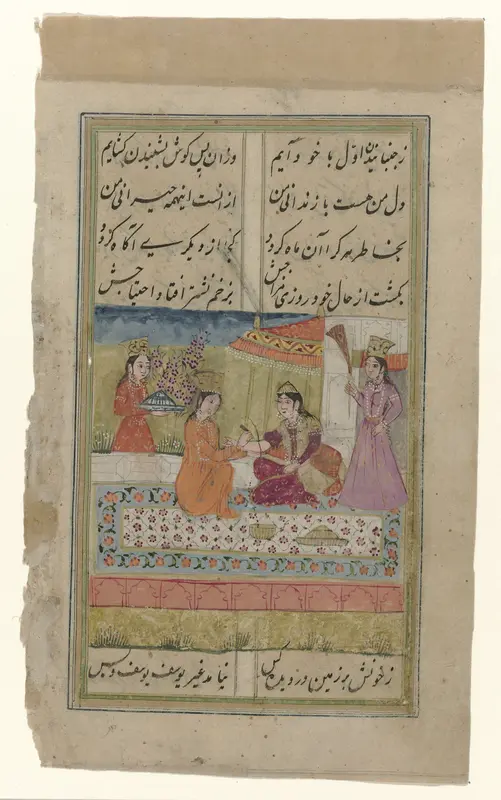 ز جنبانیدن اول با خود آیم وزان پس گوش بشنیدن گشایم
دل من هست با زندانی من از انست اینهمه حیرانی من
بخاطر هر کرا آن ماه گردد کی از دیگری آگاه گردد
بگشت از حال خود روزی مزاجش بزخم نشتر افتاد احتیاجش
ز خونش بر زمین در دیده کس نیامد غیر یوسف یوسف و بس